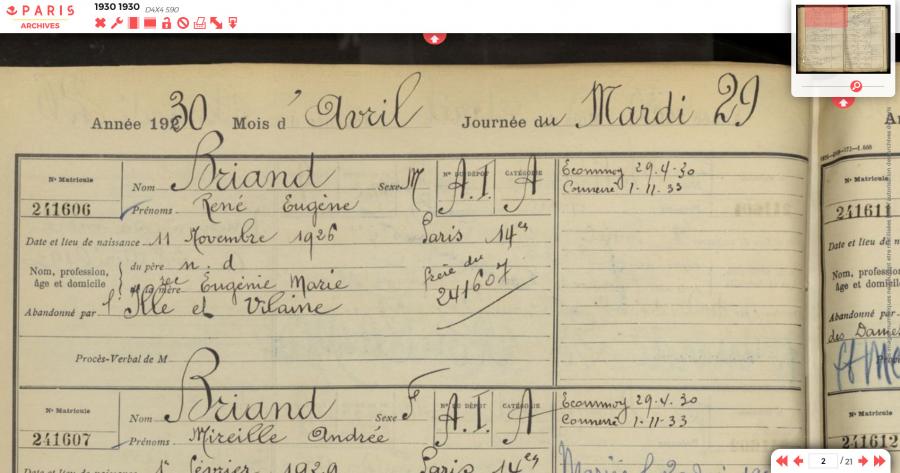 PARIS
ARCHIVES
1930 1930 D4X4 590
Année 1930 Mois d' Avril Journée du Mardi 29
N° Matricule
241606
Nom Briand Sexe M
N° DU DÉPOT A.I.
CATÉGORIE A
Ecommoy 29.4.30
Connerré 1.11.33
Prénoms René Eugène
Date et lieu de naissance 11 Novembre 1926 Paris 14es
Nom, profession, âge et domicile
du père n. d
de la mère Eugénie Marie
frère du
241607
Abandonné par l'Ille et Vilaine
Procès-Verbal de M
N° Matricule
241607
Nom Briand Sexe F
N° DU DÉPOT A.I.
CATÉGORIE A
Ecommoy 29.4.30
Connerré 1.11.33
Prénoms Mireille Andrée
Paris 14es
N° Matricule
241611
Date et lieu
Nom, profession
âge et domicile
Abandonné par
des Dames
N° Matricule
241612
Prénoms
2 / 21